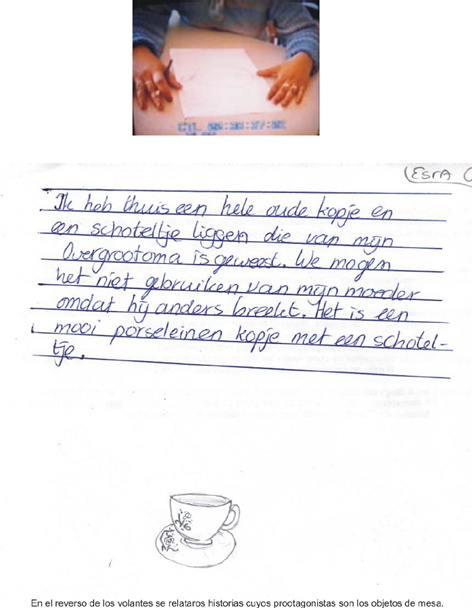 (ESRA
Ik heb thuis een hele oude kopje en
een schoteltje liggen die van mijn
Overgrootoma is geweest. We mogen
het niet gebruiken van mijn moeder
omdat hij anders breekt. Het is een
mooi porseleinen kopje met een schotel-
tje.
En el reverso de los volantes se relataros historias cuyos prootagonistas son los objetos de mesa.